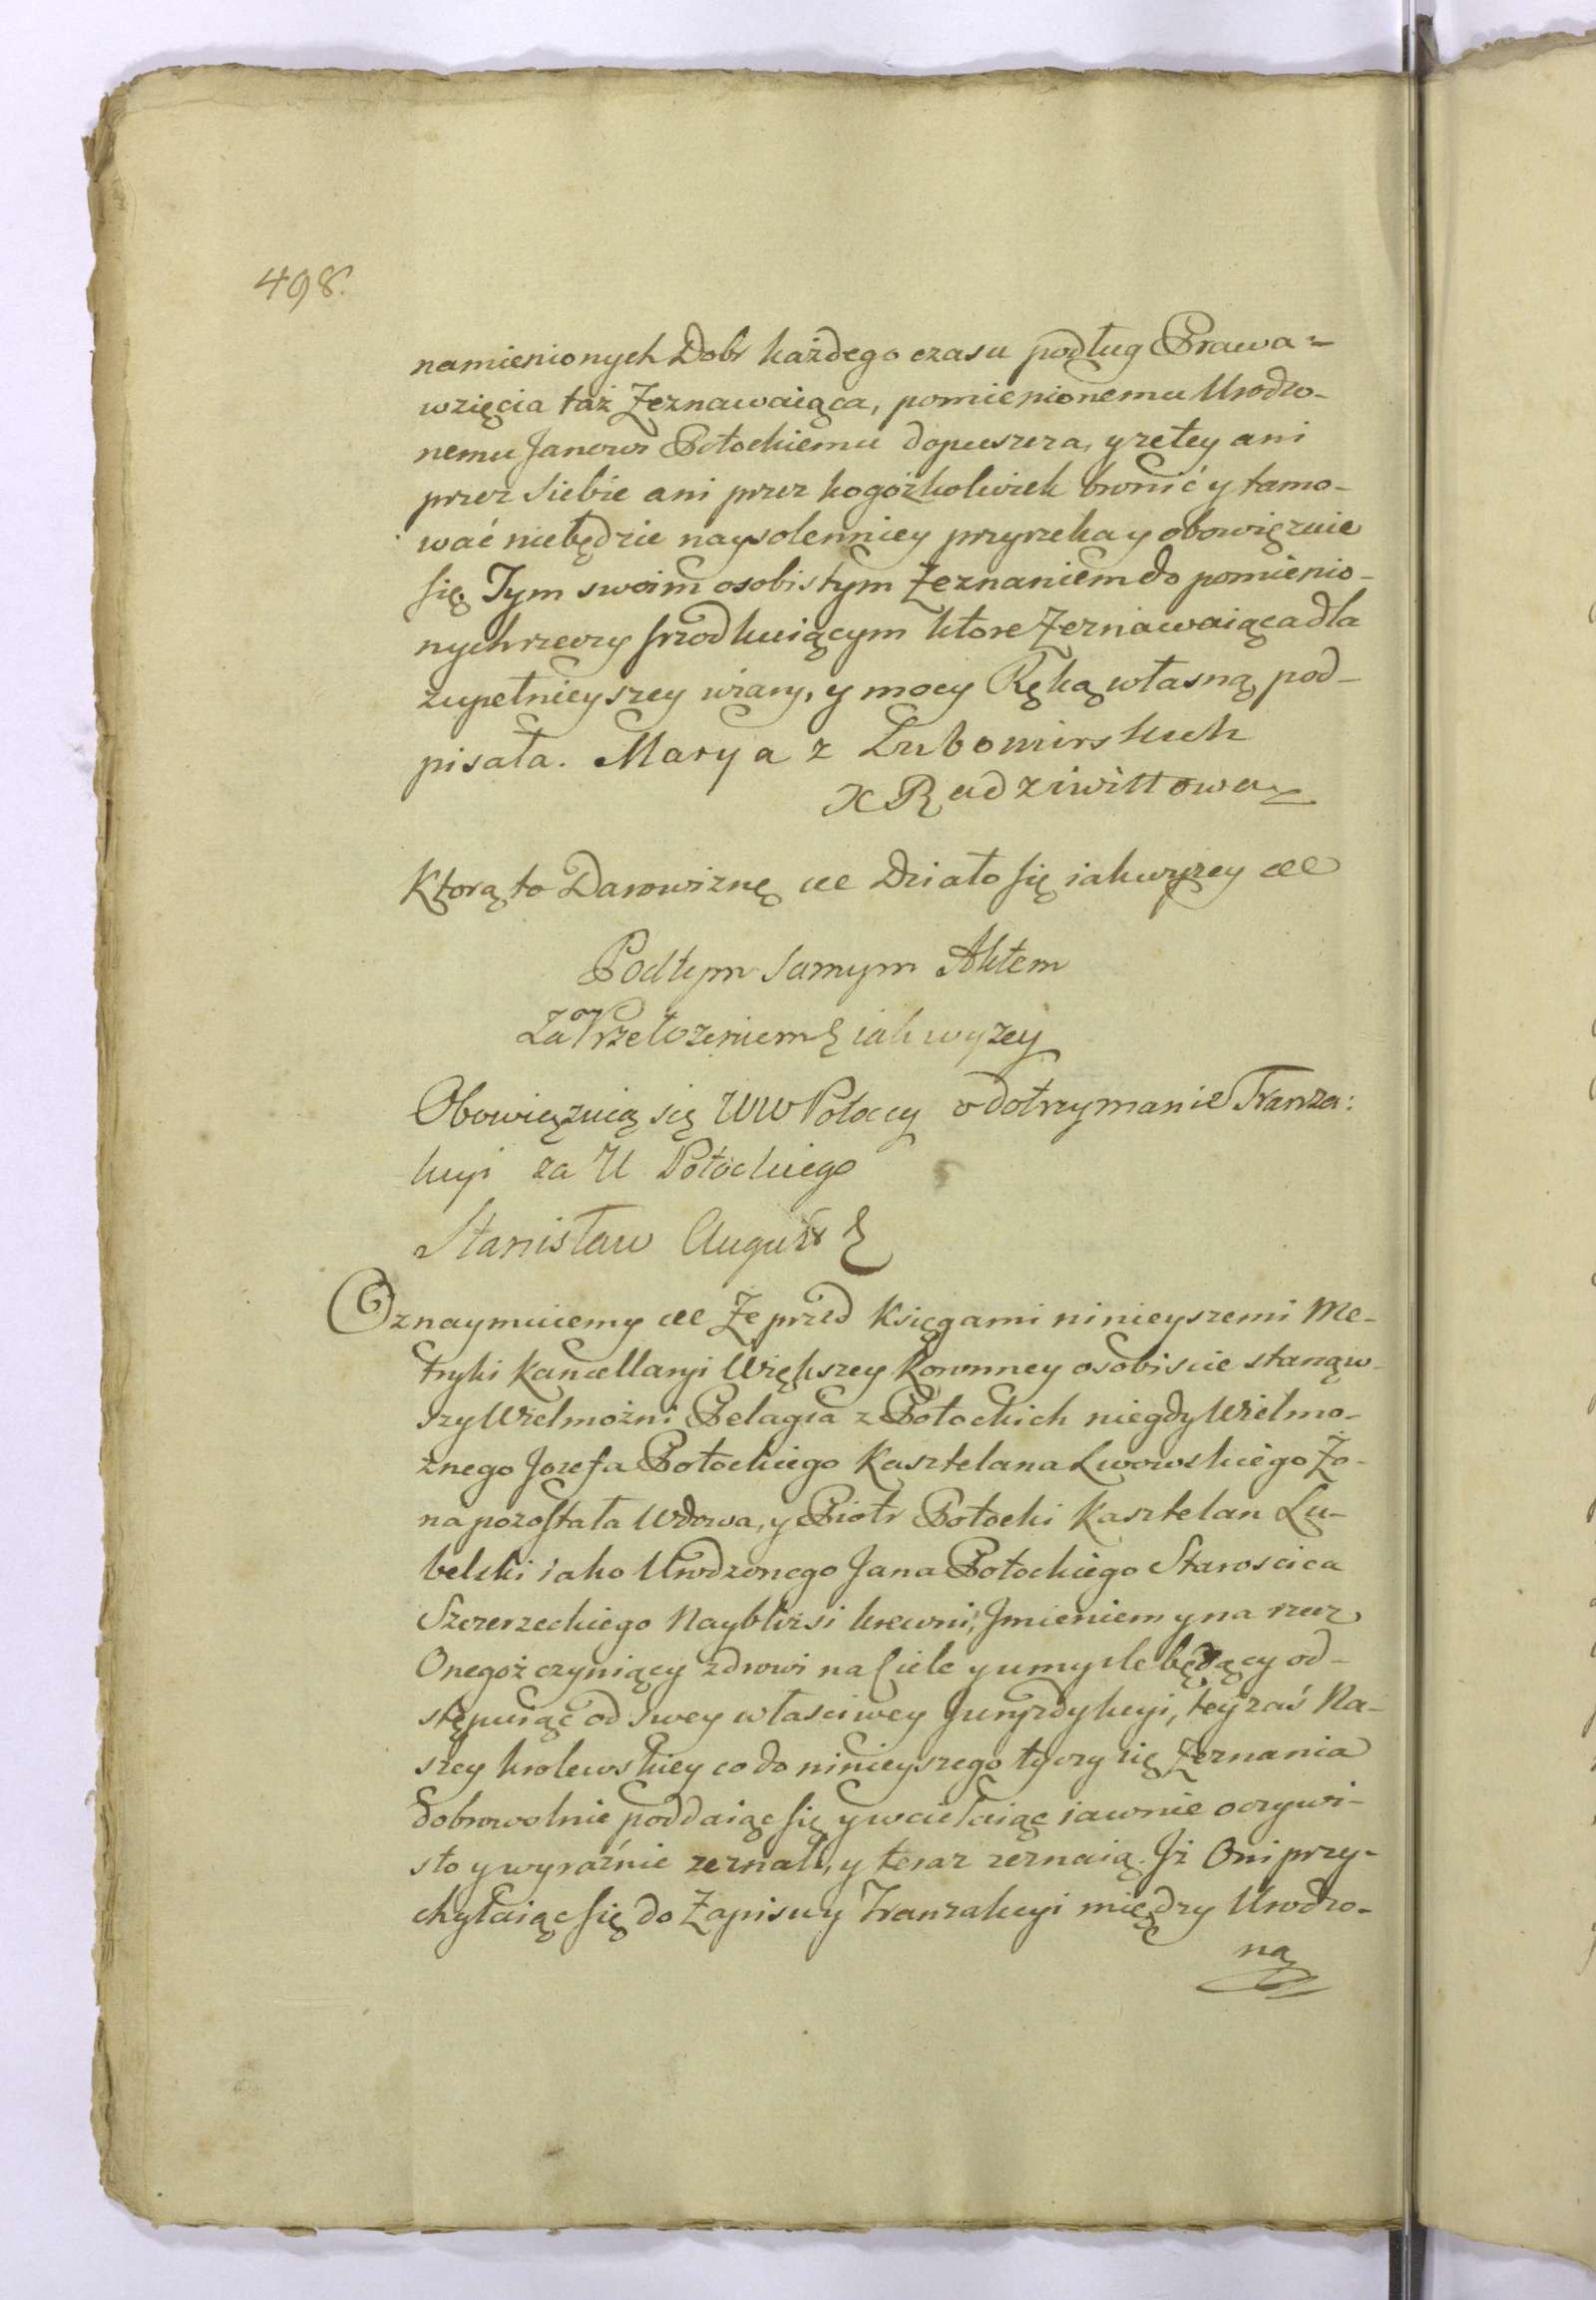 498.
namienionych Dobr każdego czasu podług Prawa=
wzięcia taż Zeznawaiąca, pomienionemu Urodzo-
nemu Janowi Potockiemu dopuszcza, y zetey ani
przez siebie ani przez kogożkolwiek bronić y tamo-
wać niebędzie naysolenniey przyrzeka y obowięzuie
się, Tym swoim osobistym Zeznaniem do pomienio-
nych rzeczy srzodkuiącym ktore Zeznawaiąca dla
zupełnieyszey wiary, y mocy Ręką własną pod-
pisała. Marya z Lubomirskich
X Radziwiłłowa
Ktorą to Darowiznę etc Działo się iak wyzey etc
Podtym samym Aktem
Za Przełozeniem iak wyzey
Obowięzuią się WW Potoccy o dotrzymanie Tranza:
kcyi za U Potockiego
Stanisław August
Oznaymuiemy etc Ze przed Księgami ninieyszemi Me-
tryki Kancellaryi Większey Koronney osobiscie stanąw-
szy Wielmożni Pelagia z Potockich niegdy Wielmo-
żnego Jozefa Potockiego Kasztelana Lwowskiego Żo-
na pozostała Wdowa, y Piotr Potocki Kasztelan Lu-
belski iako Urodzonego Jana Potockiego Staroscica
Szczerzeckiego Nayblizsi krewni, Jmieniem y na rzecz
Onegoż czyniący zdrowi na Ciele y umysle będący od-
stępuiąc od swey własciwey Juryzdykcyi, teyzaś Na-
szey krolewskiey co do ninieyszego tyczy się Zeznania
dobrowolnie poddaiąc się y wcielaiąc iawnie oczywi-
sto y wyraźnie zeznali, y teraz zeznaią. Iż Oni przy-
chylaiąc się do Zapisu y Tranzakcyi między Urodzo-
ną